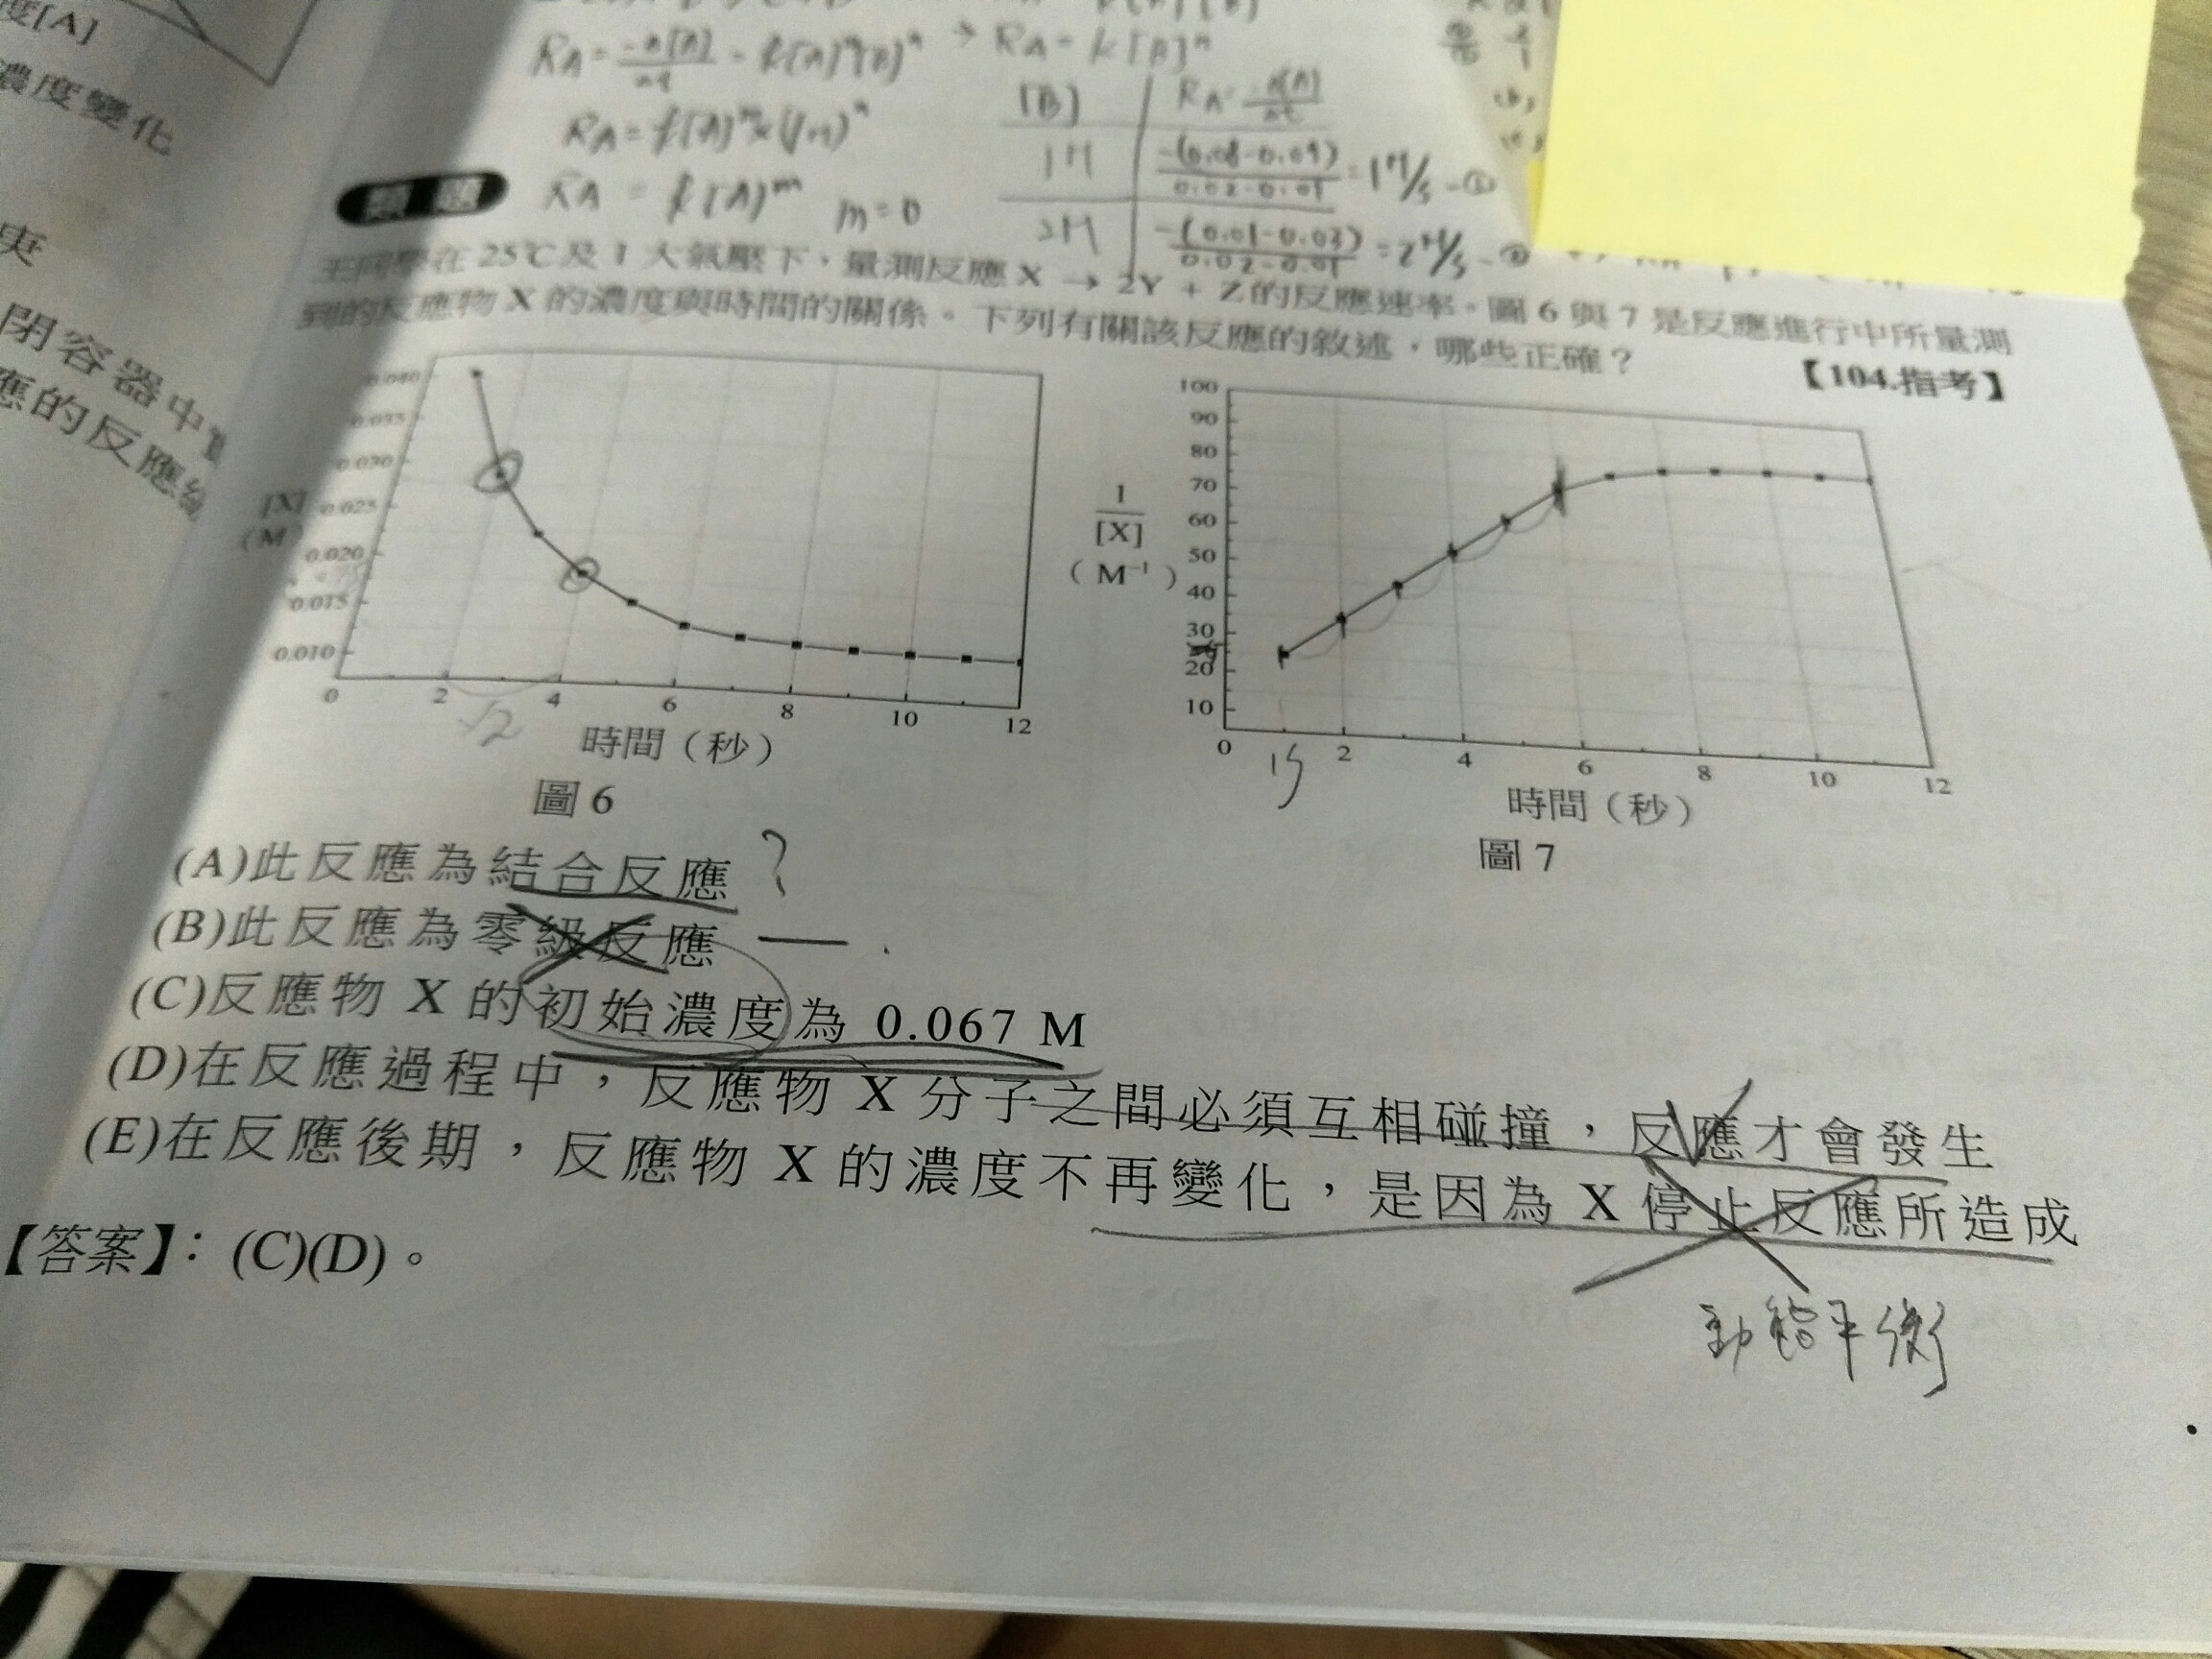 度[A]
濃度變化
閉容器中
應的反應
R_A = k[B]^n
R_A = k[A]^m
m=0
[B]
1M
2M
類題
王同學在 25℃及 1 大氣壓下，量測反應 X → 2Y + Z的反應速率。圖 6 與 7 是反應進行中所量測
到的反應物 X 的濃度與時間的關係。下列有關該反應的敘述，哪些正確？
【104.指考】
0.040
0.035
0.030
[X] 0.025
(M)
0.020
0.015
0.010
0 2 4 6 8 10 12
√2
時間（秒）
圖 6
100
90
80
70
60
50
40
30
20
10
1/[X]
（M⁻¹）
0 2 4 6 8 10 12
時間（秒）
圖 7
(A)此反應為結合反應 ?
(B)此反應為零級反應
(C)反應物 X 的初始濃度為 0.067 M
(D)在反應過程中，反應物 X 分子之間必須互相碰撞，反應才會發生
(E)在反應後期，反應物 X 的濃度不再變化，是因為 X 停止反應所造成
動態平衡
【答案】：(C)(D)。